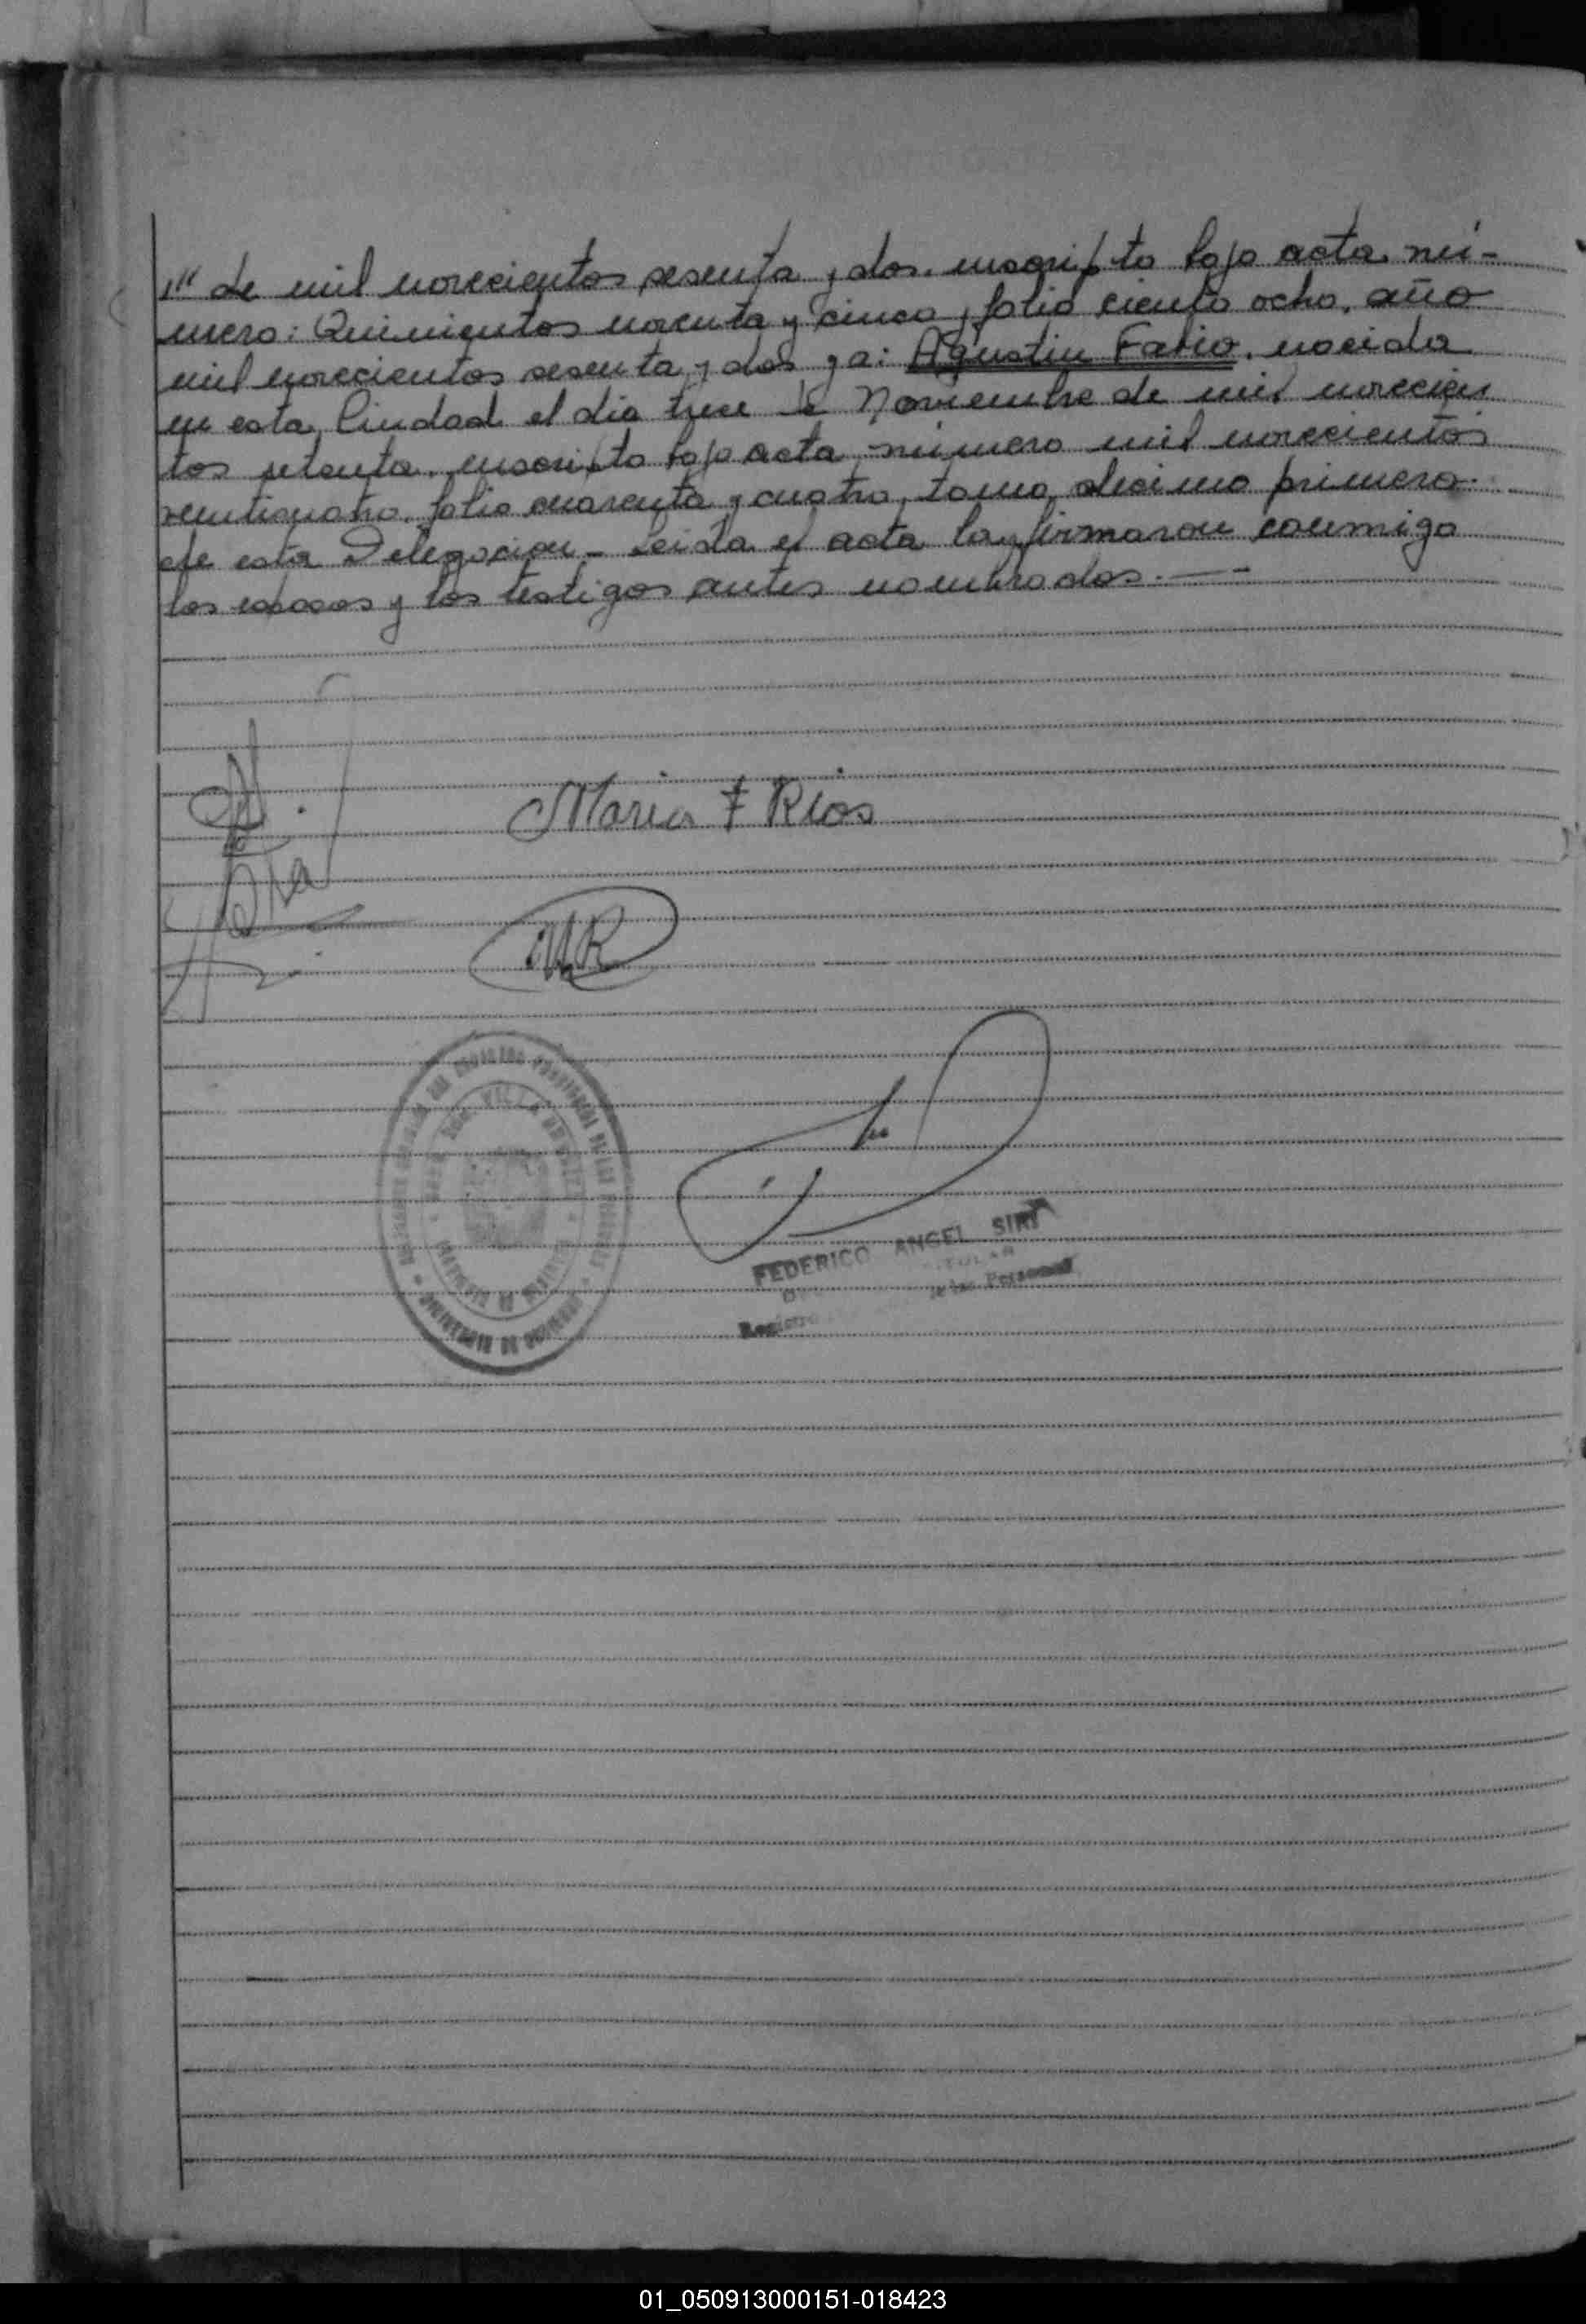 /// de mil novecientos sesenta y dos, inscripto bajo acta nú-
mero: Quinientos noventa y cinco, folio ciento ocho, año
mil novecientos sesenta y dos y a: Agustin Fabio, nacido
en esta Ciudad el dia trece de Noviembre de mil novecien
tos setenta, inscripto bajo acta número mil novecientos
veinticuatro, folio cuarenta y cuatro, tomo decimo primero
de esta Delegacion - Leida el acta la firmaron conmigo
los esposos y los testigos antes nombrados. —
Maria F Rios
MR
FEDERICO ANGEL SIRI
Registro de las Personas
MINISTERIO DE GOBIERNO
01_050913000151-018423